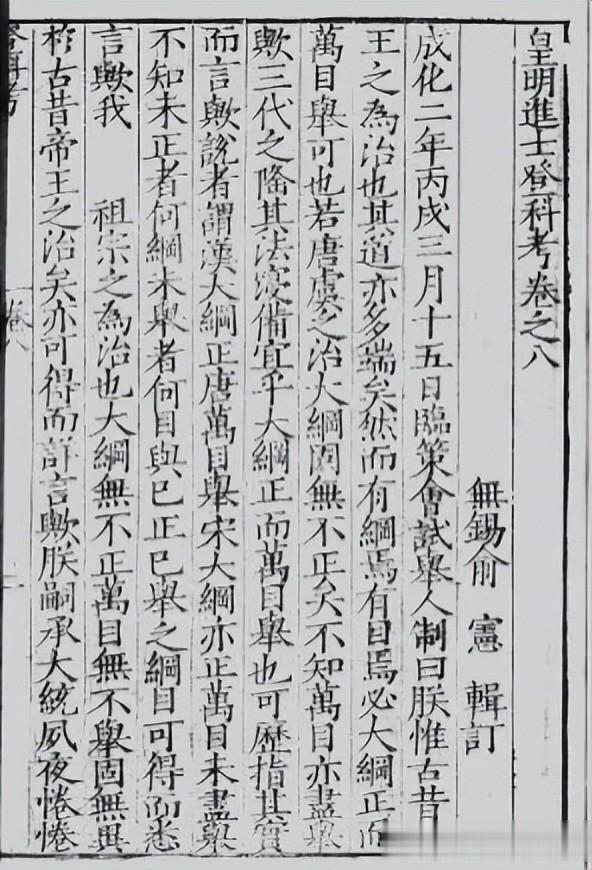 皇明進士登科考卷之八
無錫俞憲輯訂
成化二年丙戌三月十五日臨策會試舉人制曰朕惟古昔
王之為治也其道亦多端矣然而有綱焉有目焉必大綱正而
萬目舉可也若唐虞之治大綱固無不正矣不知萬目亦盡舉
歟三代之隆其法寖備宜乎大綱正而萬目舉也可歷指其實
而言歟說者謂漢大綱正唐萬目舉宋大綱亦正萬目未盡舉
不知未正者何綱未舉者何目與已正已舉之綱目可得而悉
言歟我 祖宗之為治也大綱無不正萬目無不舉固無異
於古昔帝王之治矣亦可得而詳言歟朕嗣承大統夙夜惓惓
登科考
卷八
一